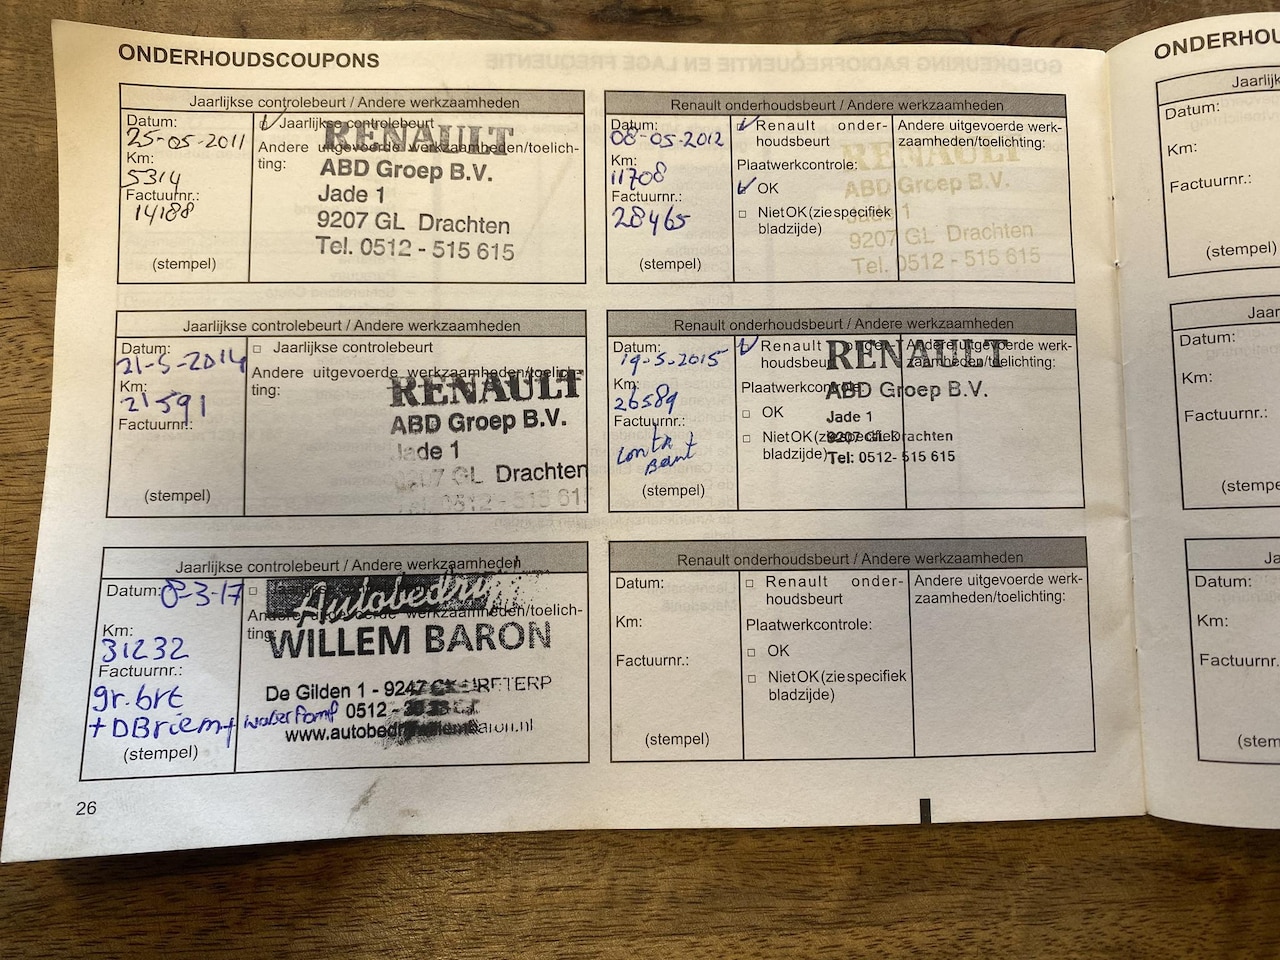 ONDERHOUDSCOUPONS
Jaarlijkse controlebeurt / Andere werkzaamheden
Datum:
25-05-2011
Km:
5314
Factuurnr.:
14188
(stempel)
Jaarlijkse controlebeurt
Andere uitgevoerde werkzaamheden/toelich-
ting:
RENAULT
ABD Groep B.V.
Jade 1
9207 GL Drachten
Tel. 0512 - 515 615
Renault onderhoudsbeurt / Andere werkzaamheden
Datum:
08-05-2012
Km:
11708
Factuurnr.:
28465
(stempel)
Renault onder-
houdsbeurt
Plaatwerkcontrole:
OK
Niet OK (zie specifiek
bladzijde)
Andere uitgevoerde werk-
zaamheden/toelichting:
RENAULT
ABD Groep B.V.
Jade 1
9207 GL Drachten
Tel. 0512 - 515 615
Jaarlijkse controlebeurt / Andere werkzaamheden
Datum:
21-5-2014
Km:
21591
Factuurnr.:
(stempel)
Jaarlijkse controlebeurt
Andere uitgevoerde werkzaamheden/toelich-
ting:
RENAULT
ABD Groep B.V.
Jade 1
9207 GL Drachten
Tel. 0512 - 515 61
Renault onderhoudsbeurt / Andere werkzaamheden
Datum:
19-5-2015
Km:
26589
Factuurnr.:
(stempel)
Renault onder-
houdsbeurt
Plaatwerkcontrole:
OK
Niet OK (zie specifiek
bladzijde)
Andere uitgevoerde werk-
zaamheden/toelichting:
RENAULT
ABD Groep B.V.
Jade 1
9207 GL Drachten
Tel: 0512- 515 615
Jaarlijkse controlebeurt / Andere werkzaamheden
Datum:
8-3-17
Km:
31232
Factuurnr.:
gr.brt
+ DBriem + waterPomp
(stempel)
Andere uitgevoerde werkzaamheden/toelich-
ting:
Autobedrijf
WILLEM BARON
De Gilden 1 - 9247 URETERP
0512 -
www.autobedrijfwillembaron.nl
Renault onderhoudsbeurt / Andere werkzaamheden
Datum:
Km:
Factuurnr.:
(stempel)
Renault onder-
houdsbeurt
Plaatwerkcontrole:
OK
Niet OK (zie specifiek
bladzijde)
Andere uitgevoerde werk-
zaamheden/toelichting:
26
ONDERHOU
Jaarlijk
Datum:
Km:
Factuurnr.:
(stempel)
Jaar
Datum:
Km:
Factuurnr.:
(stempe
Ja
Datum:
Km:
Factuurnr.:
(stem